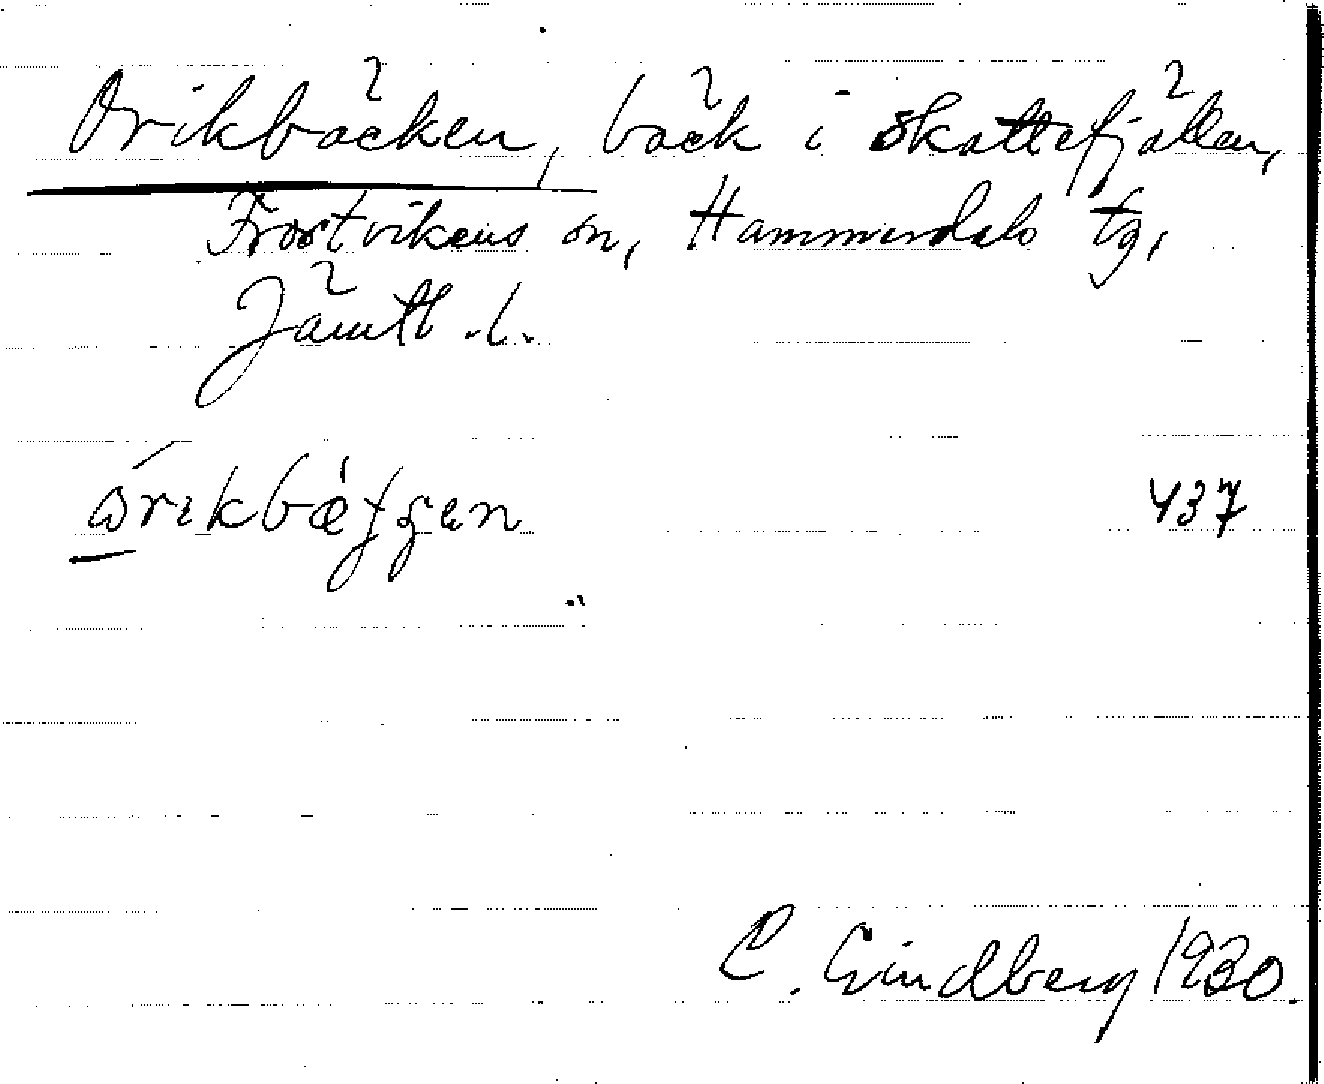 Orikbäcken, bäck i Skattefjällen,
Frostvikens sn, Hammerdals tg,
Jämtl. l.
437
C. Lindberg 1930.